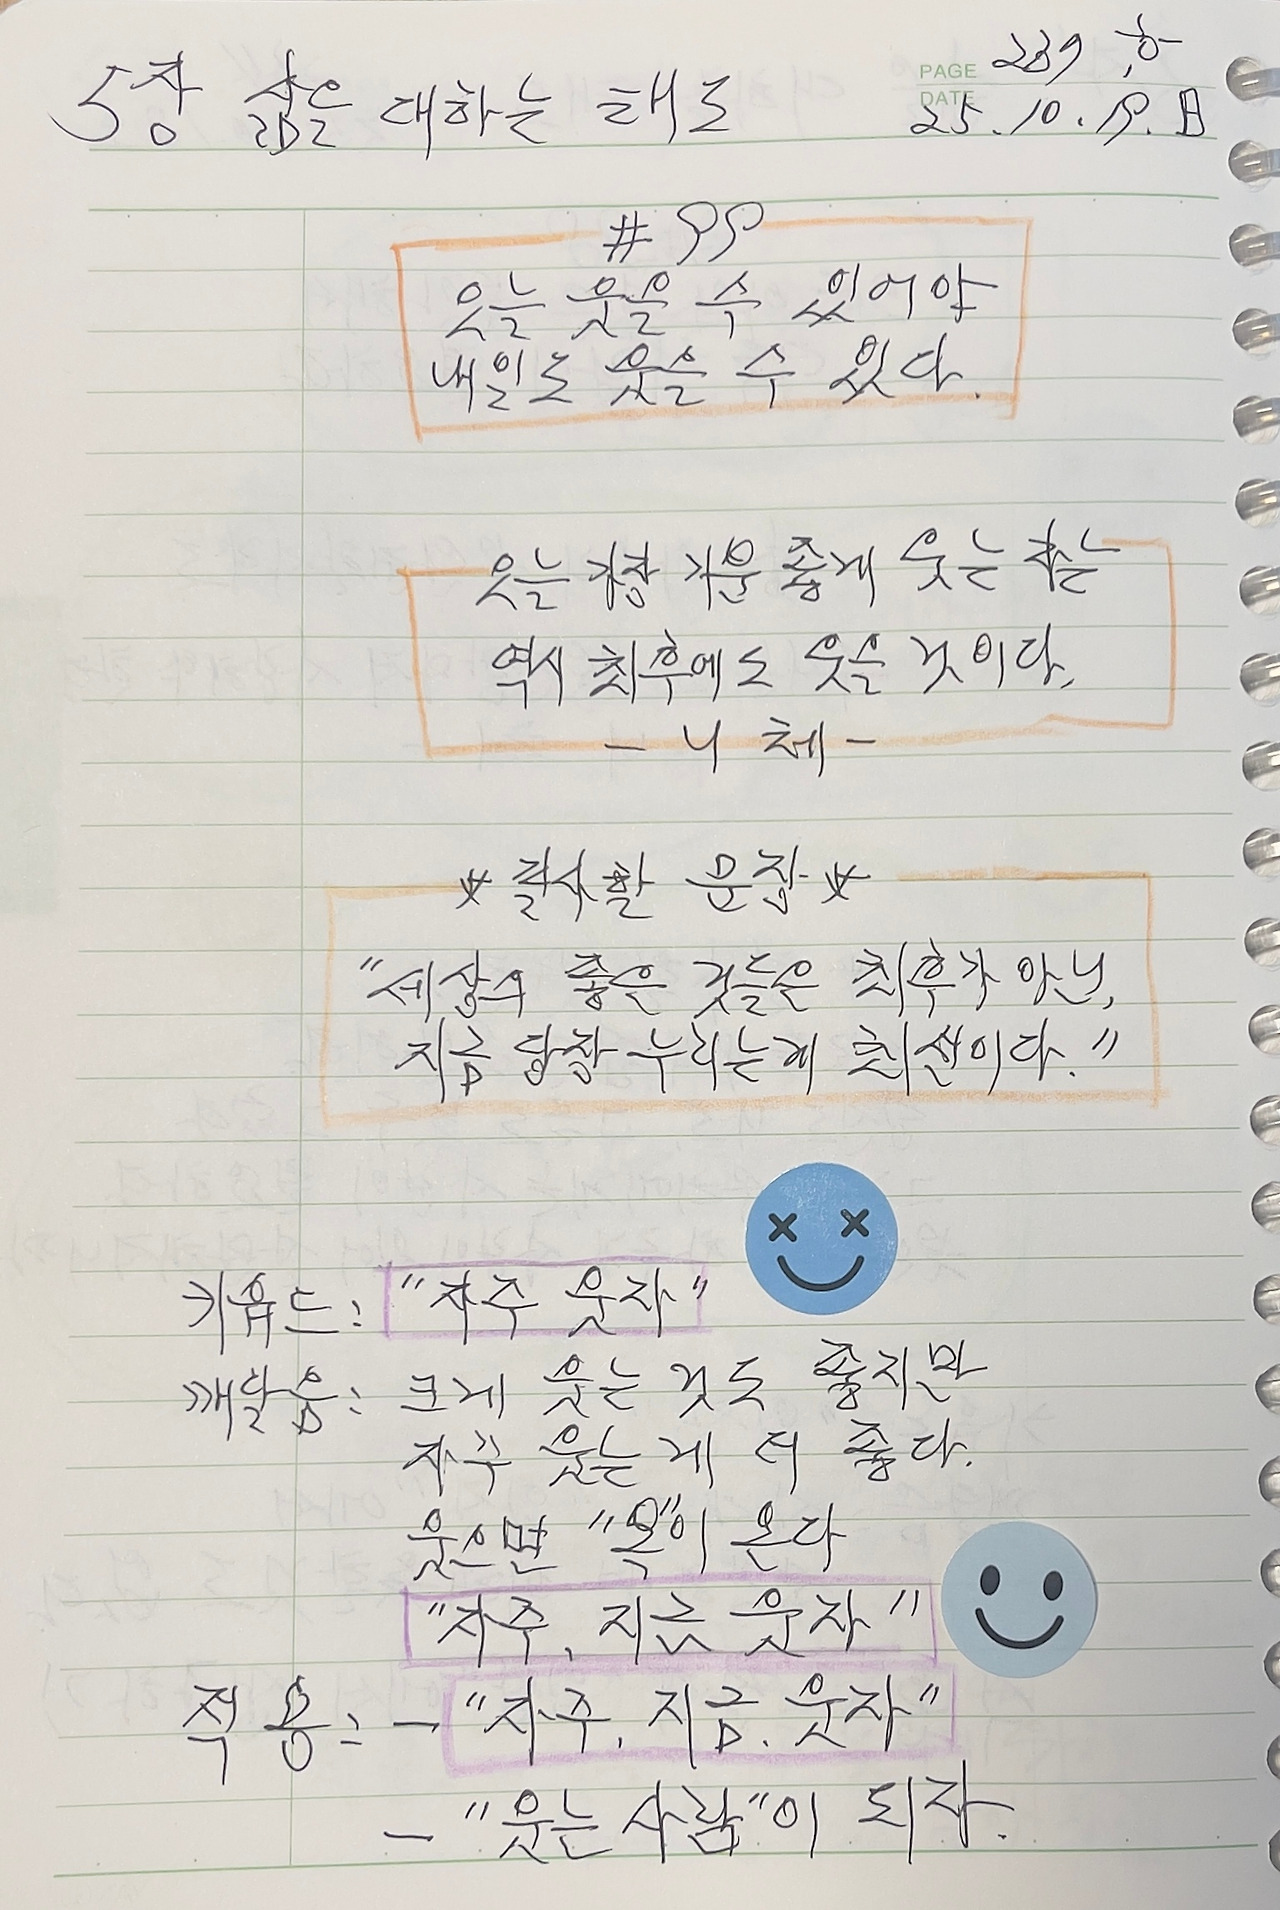 5장 삶을 대하는 태도
PAGE 239, 하
DATE 25. 10. 19. 日
# 99
오늘 웃을 수 있어야
내일도 웃을 수 있다.
오늘 가장 기분 좋게 웃는 자는
역시 최후에도 웃을 것이다.
- 니체 -
* 필사할 문장 *
"세상의 좋은 것들은 최후가 아닌,
지금 당장 누리는게 최선이다."
키워드: "자주 웃자"
깨달음: 크게 웃는 것도 좋지만
자주 웃는 게 더 좋다.
웃으면 "복"이 온다
"자주, 지금 웃자"
적용: - "자주, 지금. 웃자"
- "웃는 사람"이 되자.